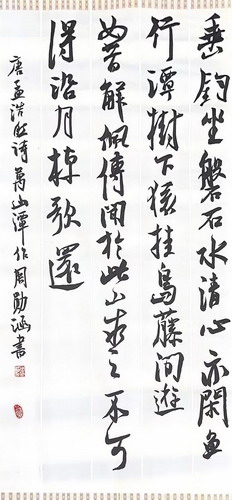 垂钓坐磐石水清心亦閑魚
行潭樹下猿挂鳥藤間遊
女昔解佩傳聞於此山求之不可
得沿月棹歌還
唐孟浩然詩萬山潭作周勛涵書